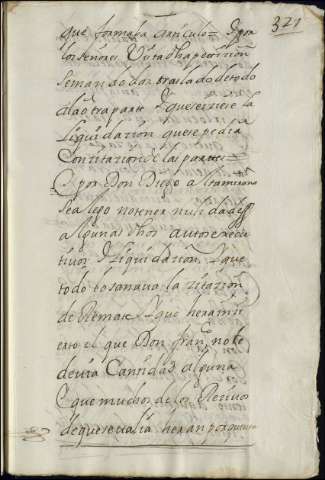 321
que formaba articulo = Y por
los señores Vista dha peticion
se mando dar traslado de todo
a la otra parte Y que se hiciese la
Liquidazion que se pedia
Con zitazion de las partes =
Y por Don Diego Altamirano
se alego no tener nulidad
algunas dhos autos execu
tivos Y Liquidazion Y que
todo lo sanava la zitazion
de Remate Y que hera in
cierto el que Don Franco no le
devia Cantidad alguna
Y que muchos de los Recivos
de que se valia heran por quenta